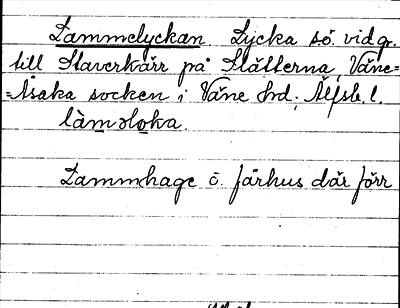 Lammelyckan Lycka s.ö. vid gr.
till Staverkärr på Slätterna, Väne=
=Åsaka socken i Väne Hrd. Älfsb. l.
Lammhage o. fårhus där förr